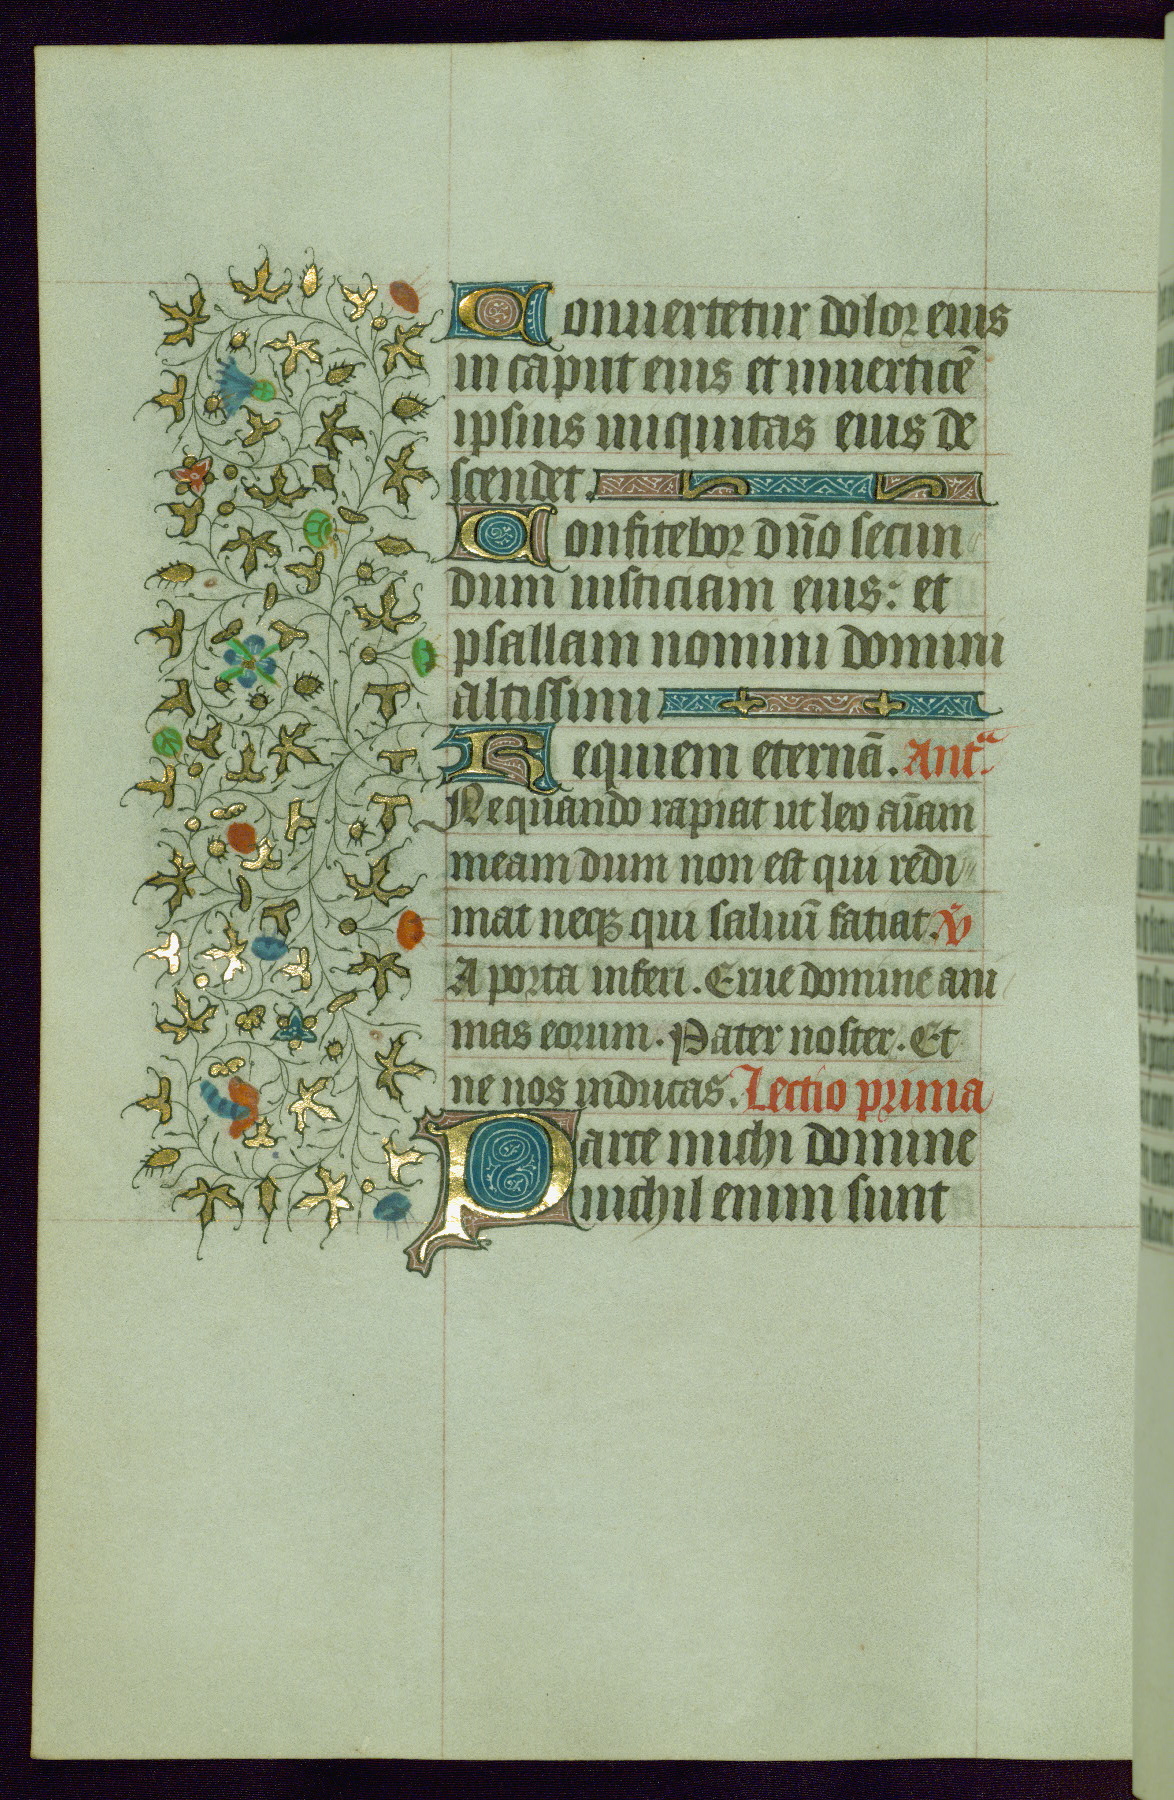 Conuertetur dolor eius
in caput eius et inuerticē
ipsius iniquitas eius de
scendet.
Confitebor dn̄o secun
dum iusticiam eius: et
psallam nomini domini
altissimi
Requiem eternā. Ant̄a
Nequando rapiat ut leo aīam
meam dum non est qui redi
mat neqꝫ qui saluū fatiat. v̄
A porta inferi. Erue domine ani
mas eorum. Pater noster. Et
ne nos inducas. Lectio prima
Parce michi domine
nichil enim sunt